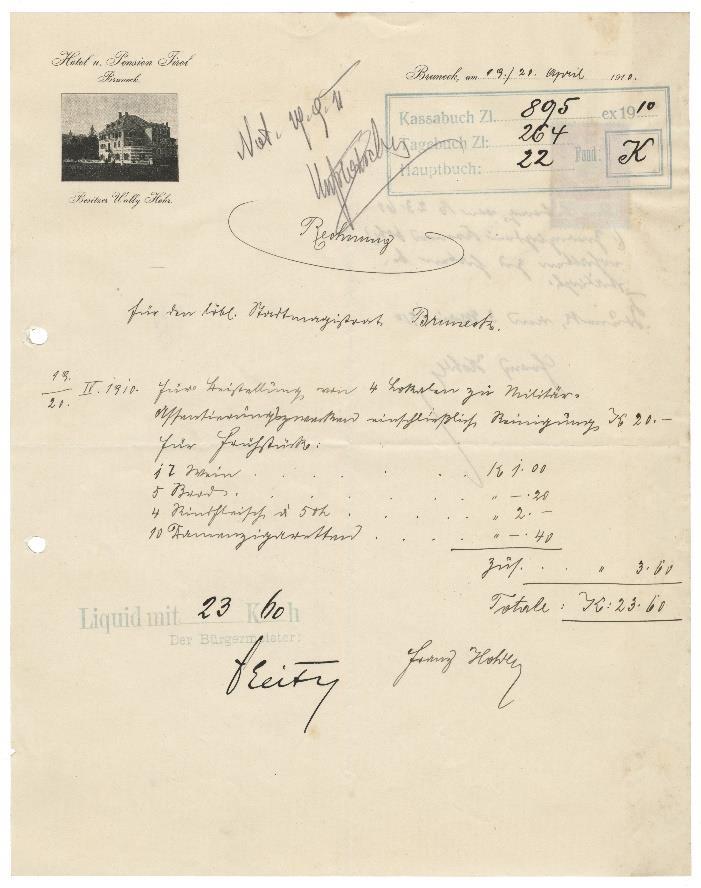 Hotel u. Pension Tirol
Bruneck.
Besitzer Wally Kohr.
Bruneck, am 19./20. April 1910.
Kassabuch Zl. 895 ex 1910
Tagebuch Zl: 264
Hauptbuch: 22
Fand: K
Not. 29.9.11
Rechnung
für den löbl. Stadtmagistrat Bruneck.
19./20. IV. 1910. Für Beistellung von 4 Lokalen zu Militär-
Assentierungszwecken einschließlich Reinigung K 20.-
Für Frühstück:
1 l Wein . . . . . K 1.00
5 Brod . . . . . " -. 20
4 Rindfleisch à 50h . . . . " 2.-
10 Damenzigaretten . . . . " -. 40
Zus. . . " 3.60
Totale: K: 23.60
Liquid mit 23 K 60 h
Der Bürgermeister:
Franz